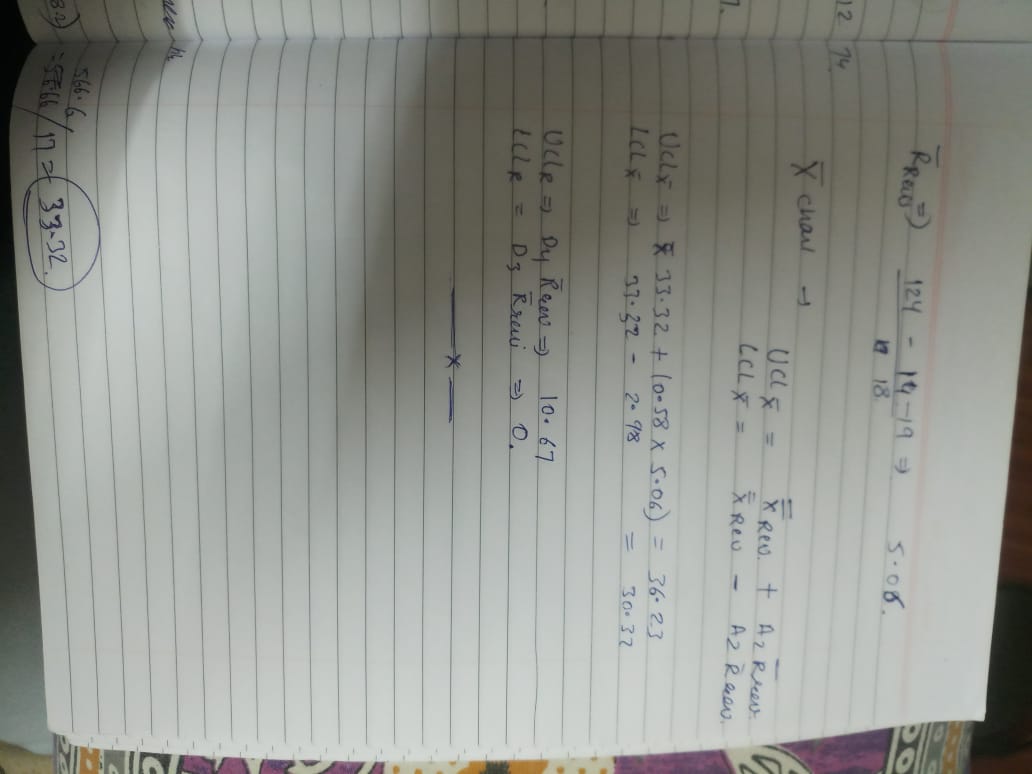 R̄Rev ⇒ 124 - 14 - 19 ⇒ 5.06.
18.
X̄ chart →
UCL X̄ = X̿ Rev. + A2 R̄rev.
LCL X̄ = X̿ Rev - A2 R̄rev.
UCL X̄ ⇒ 33.32 + (0.58 x 5.06) = 36.23
LCL X̄ ⇒ 33.32 - 2.98 = 30.32
UCLR ⇒ D4 R̄rev ⇒ 10.67
LCLR = D3 R̄rev ⇒ 0.
x
566.6
/ 17 = 33.32.
12 14.
7.